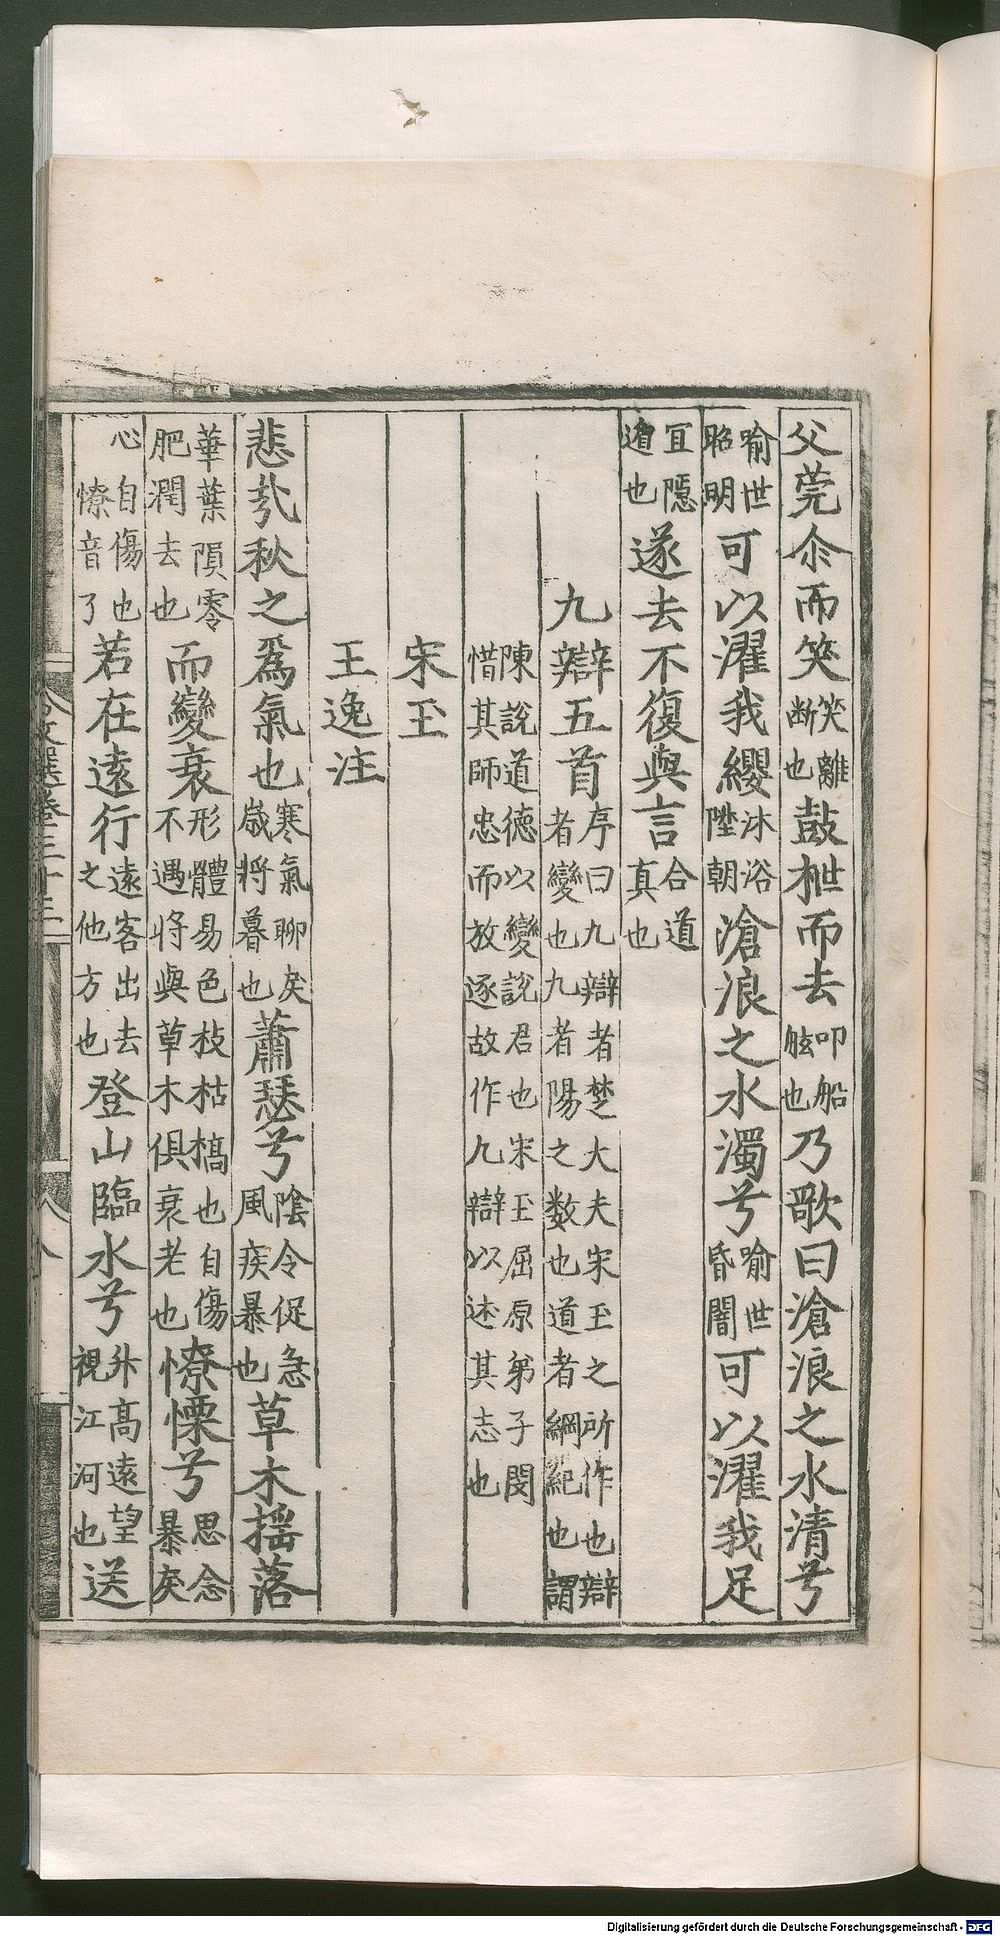 父莞尒而笑笑離断也鼓枻而去叩船舷也乃歌曰滄浪之水清兮
喻世昭明可以濯我纓沐浴陞朝滄浪之水濁兮喻世昏闇可以濯我足
宜隱遁也遂去不復與言合道真也
九辯五首序曰九辯者楚大夫宋玉之所作也辯者變也九者陽之数也道者綱紀也謂
陳說道德以變說君也宋玉屈原弟子閔惜其師忠而放逐故作九辯以述其志也
宋玉
王逸注
悲㢤秋之爲氣也寒氣聊戾歲将暮也蕭瑟兮陰令促急風疾暴也草木揺落
華葉隕零肥潤去也而變衰形體易色枝枯槁也不遇将與草木俱衰老也自傷憭慄兮思念暴戾
心自傷也憭音了若在遠行遠客出去之他方也登山臨水兮升高遠望視江河也送
選卷三十三
Digitalisierung gefördert durch die Deutsche Forschungsgemeinschaft - DFG